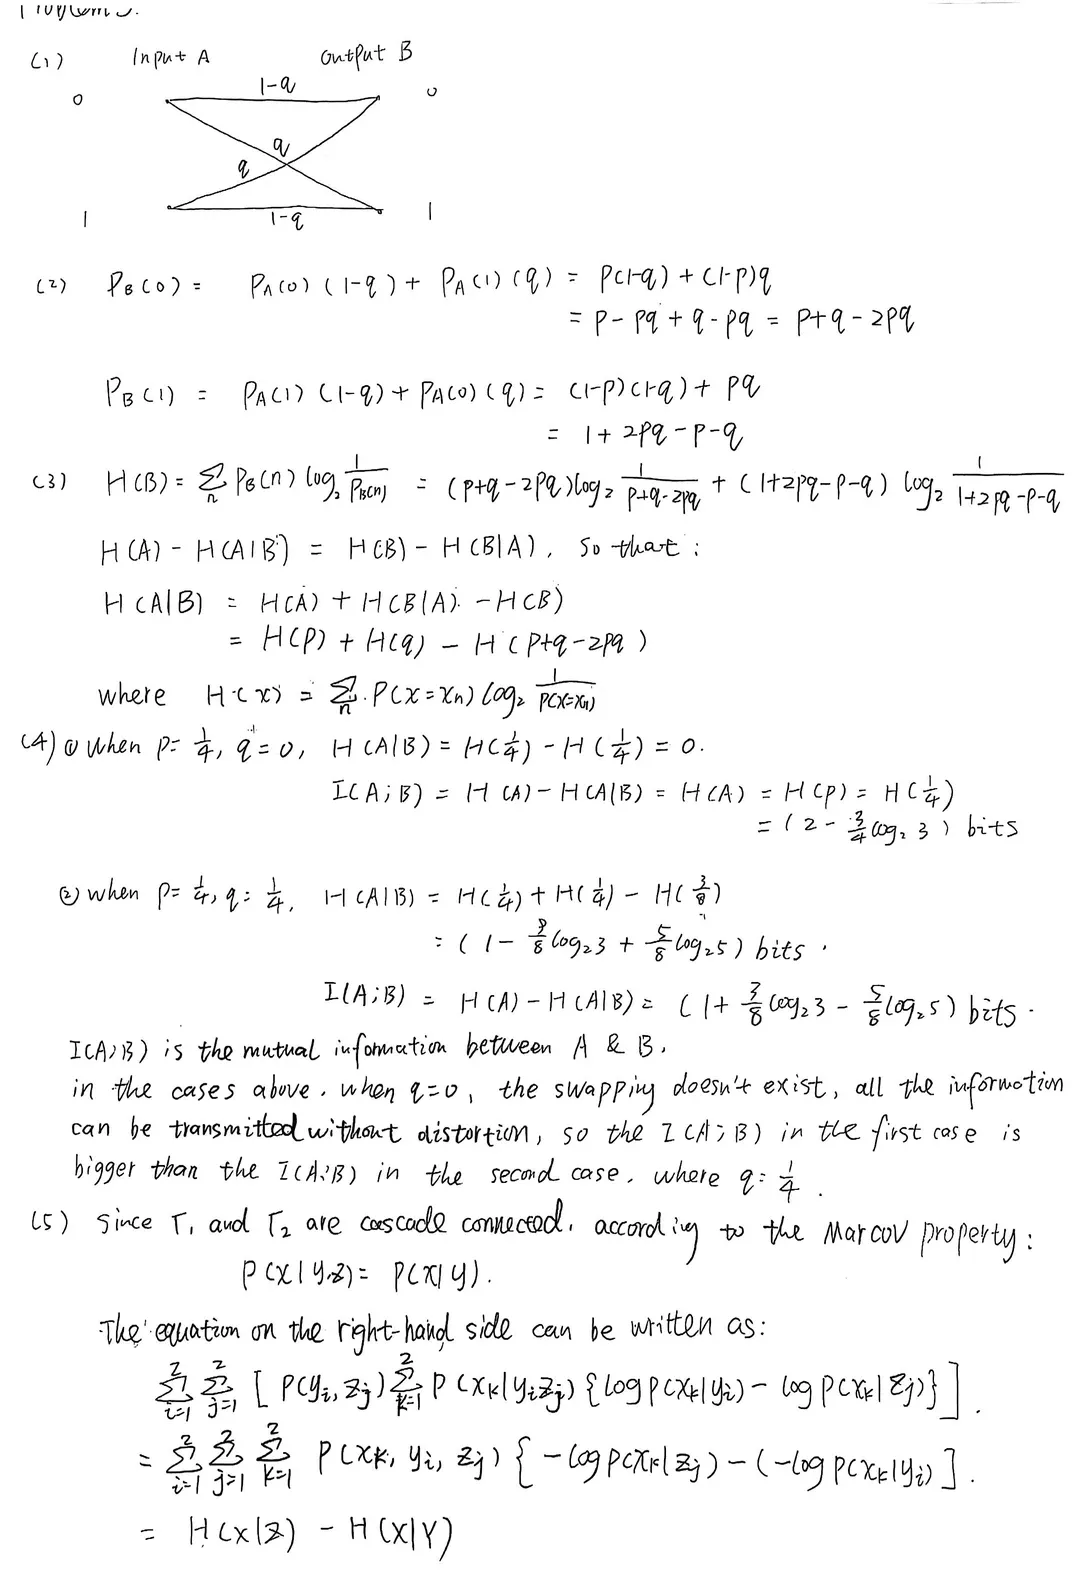 Problem 3.
(1) Input A Output B
1-q
0 0
q
q
1 1
1-q
(2) P_B(0) = P_A(0) (1-q) + P_A(1) (q) = p(1-q) + (1-p)q
= p - pq + q - pq = p+q-2pq
P_B(1) = P_A(1) (1-q) + P_A(0) (q) = (1-p)(1-q) + pq
= 1 + 2pq - p - q
(3) H(B) = Σ_n P_B(n) log₂ 1/P_B(n) = (p+q-2pq) log₂ 1/(p+q-2pq) + (1+2pq-p-q) log₂ 1/(1+2pq-p-q)
H(A) - H(A|B) = H(B) - H(B|A), so that:
H(A|B) = H(A) + H(B|A) - H(B)
= H(p) + H(q) - H(p+q-2pq)
where H(x) = Σ_n P(x=x_n) log₂ 1/P(x=x_n)
(4) ① when p=1/4, q=0, H(A|B) = H(1/4) - H(1/4) = 0.
I(A;B) = H(A) - H(A|B) = H(A) = H(p) = H(1/4)
= (2 - 3/4 log₂ 3) bits
② when p=1/4, q=1/4, H(A|B) = H(1/4) + H(1/4) - H(3/8)
= (1 - 9/8 log₂3 + 5/8 log₂5) bits.
I(A;B) = H(A) - H(A|B) = (1 + 3/8 log₂3 - 5/8 log₂5) bits.
I(A;B) is the mutual information between A & B.
in the cases above. when q=0, the swapping doesn't exist, all the information
can be transmitted without distortion, so the I(A;B) in the first case is
bigger than the I(A;B) in the second case, where q=1/4.
(5) Since T₁ and T₂ are cascade connected. according to the Marcov property:
P(x|y,z) = P(x|y).
The equation on the right-hand side can be written as:
Σ_{i=1}^2 Σ_{j=1}^2 [ P(y_i, z_j) Σ_{k=1}^2 P(x_k|y_i z_j) { log P(x_k|y_i) - log P(x_k|z_j) } ].
= Σ_{i=1}^2 Σ_{j=1}^2 Σ_{k=1}^2 P(x_k, y_i, z_j) { - log P(x_k|z_j) - (-log P(x_k|y_i) ].
= H(X|Z) - H(X|Y)